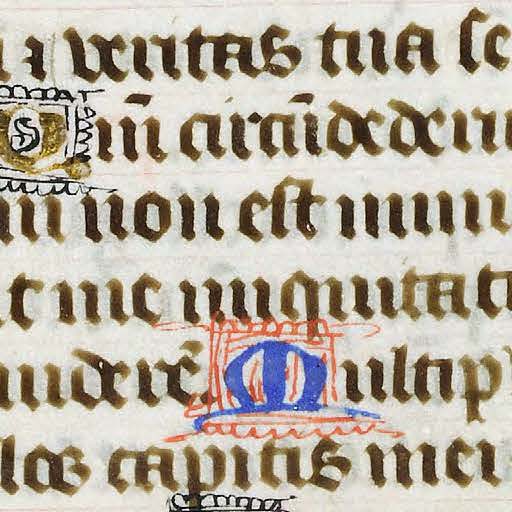 a ⁊ veritas tua se
Qm̄ circūdederu
m non est nume
t me iniquitat
uiderē Multip
los capitis mei